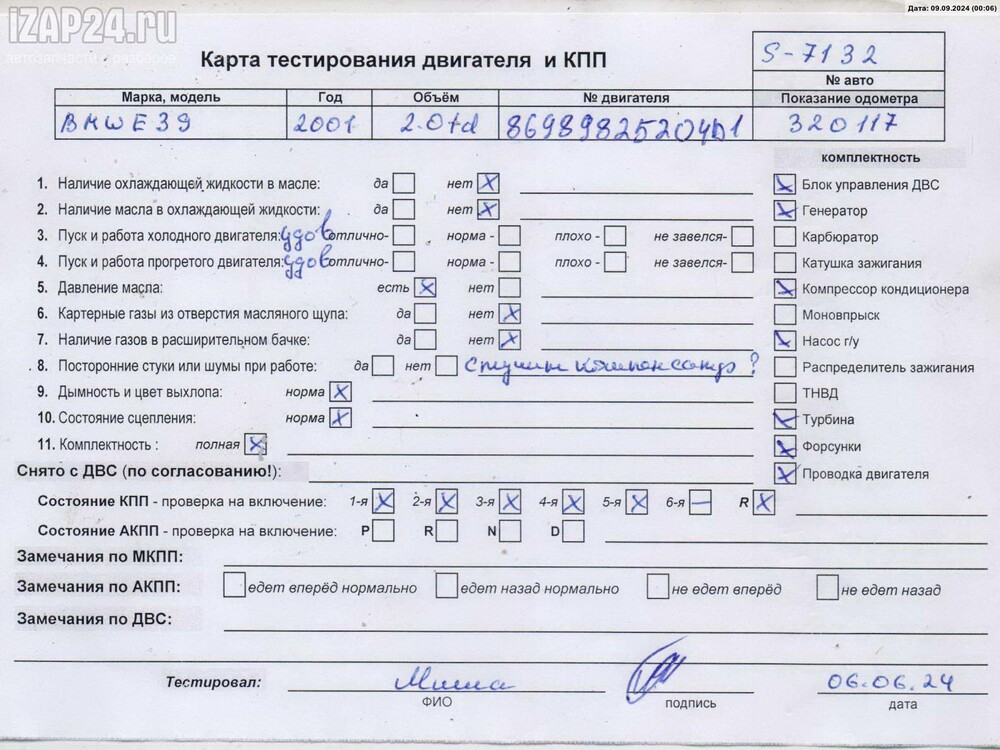 Дата: 09.09.2024 (00:06)
iZAP24.ru
автозапчасти с разборов
Карта тестирования двигателя и КПП
S-7132
№ авто
Марка, модель Год Объём № двигателя Показание одометра
BMW E39 2001 2.0td 86989825204D1 320117
комплектность
1. Наличие охлаждающей жидкости в масле: да нет X
Блок управления ДВС
2. Наличие масла в охлаждающей жидкости: да нет X
Генератор
3. Пуск и работа холодного двигателя: удов отлично- норма - плохо - не завелся-
Карбюратор
4. Пуск и работа прогретого двигателя: удов отлично- норма - плохо - не завелся-
Катушка зажигания
5. Давление масла: есть X нет
Компрессор кондиционера
6. Картерные газы из отверстия масляного щупа: да нет X
Моновпрыск
7. Наличие газов в расширительном бачке: да нет X
Насос г/у
8. Посторонние стуки или шумы при работе: да нет ?
Распределитель зажигания
9. Дымность и цвет выхлопа: норма X
ТНВД
10. Состояние сцепления: норма X
Турбина
11. Комплектность : полная X
Форсунки
Снято с ДВС (по согласованию!):
Проводка двигателя
Состояние КПП - проверка на включение: 1-я X 2-я X 3-я X 4-я X 5-я X 6-я — R X
Состояние АКПП - проверка на включение: P R N D
Замечания по МКПП:
Замечания по АКПП: едет вперёд нормально едет назад нормально не едет вперёд не едет назад
Замечания по ДВС:
Тестировал: Миша 06.06.24
ФИО подпись дата